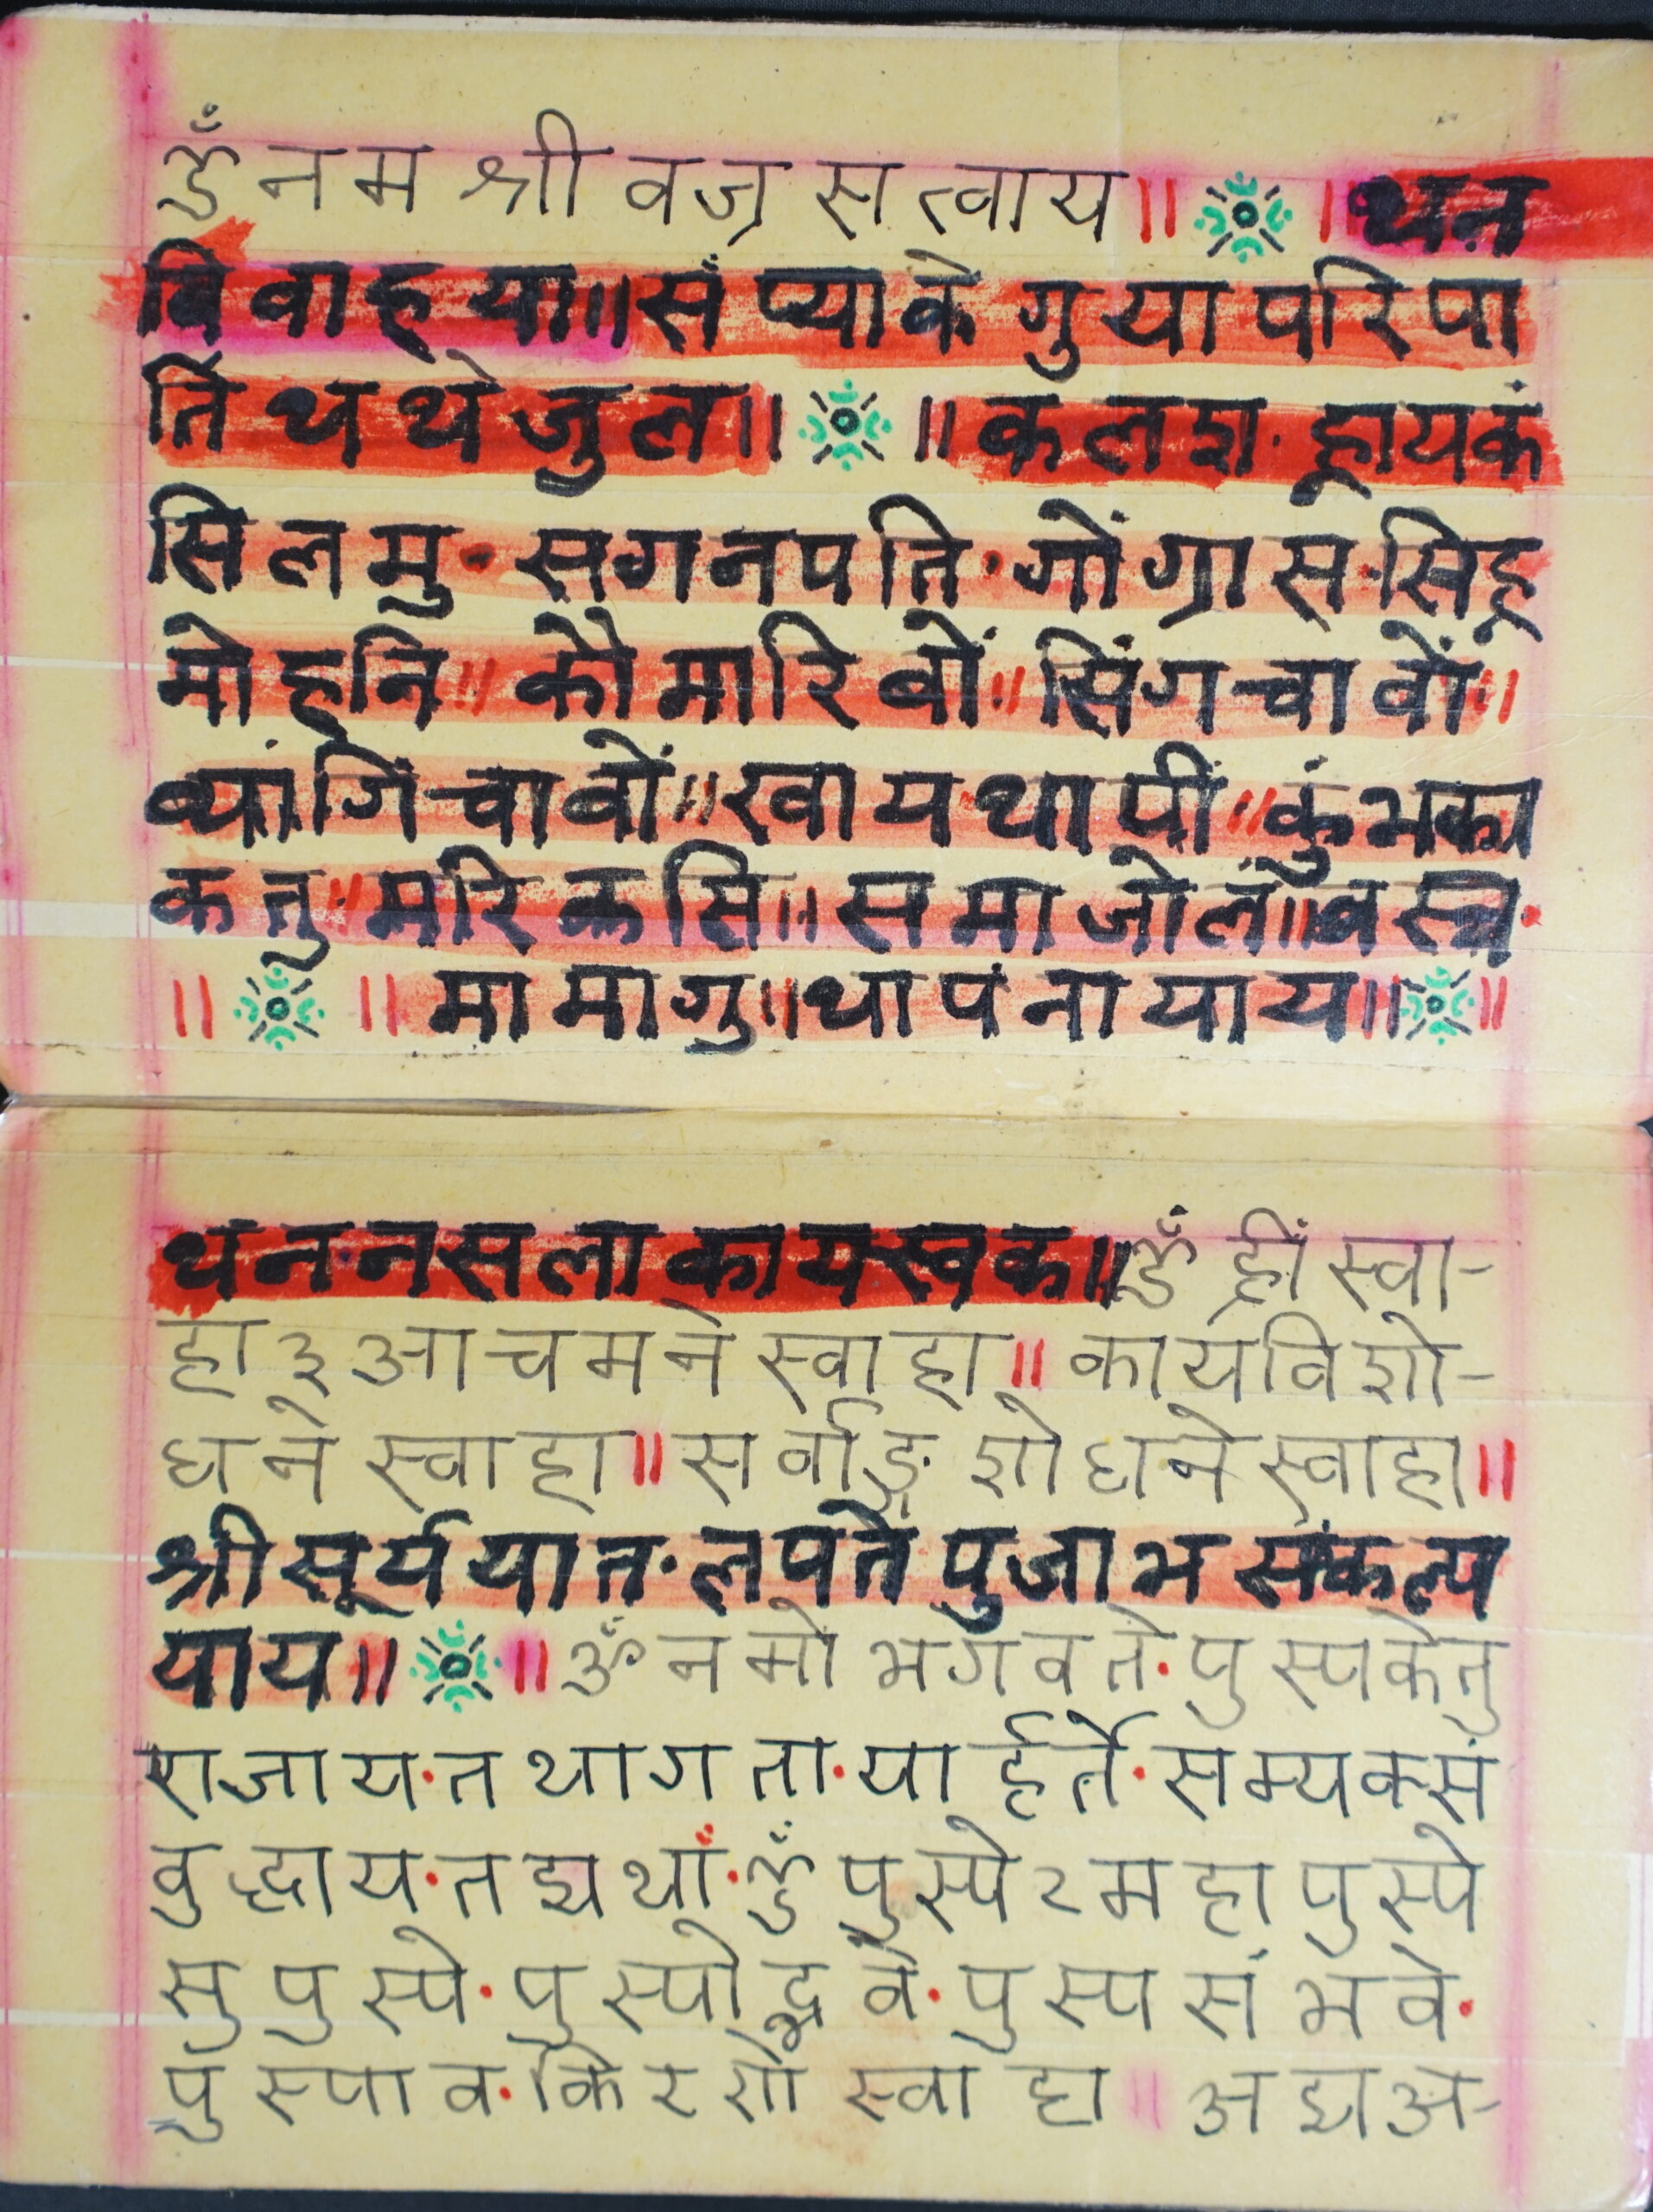 ॐ नम श्री वज्र सत्वाय॥ । थन
बिवाह या॥ सं प्याके गु या परिपा
र्ति थ थे जुल॥ ॥ कलश. ह्रायकं
सिलमु · सगनपति · गोंग्रास · सिह्र
मोहनि॥ कौमारि बों॥ सिंगचा वों॥
व्यांगिं चा वों॥ खाय थापीं॥ कुंभका
कतु॥ मरि कसि॥ समाजोलं॥ वस्त्र
॥ ॥ मामागु॥ थापंना याय॥ ॥
थन नसला कायस्वक॥ ॐ ह्रीं स्वा-
हा ३ आचमने स्वाहा॥ कायविशो-
धने स्वाहा॥ सर्वाङ्ग शोधने स्वाहा॥
श्रीसूर्य यात · लपते पुजा भ संकल्प
याय॥ ॥ ॐ नमो भगवते · पुस्पकेतु
राजाय · तथागता · यार्हर्ते · सम्यक्सं
वुद्धाय · तद्यथां · ॐ पुस्पे २ महापुस्पे
सुपुस्पे · पुस्पोद्भवे · पुस्प संभवे ·
पुस्पाव · किरणे स्वाहा॥ अद्यअ-